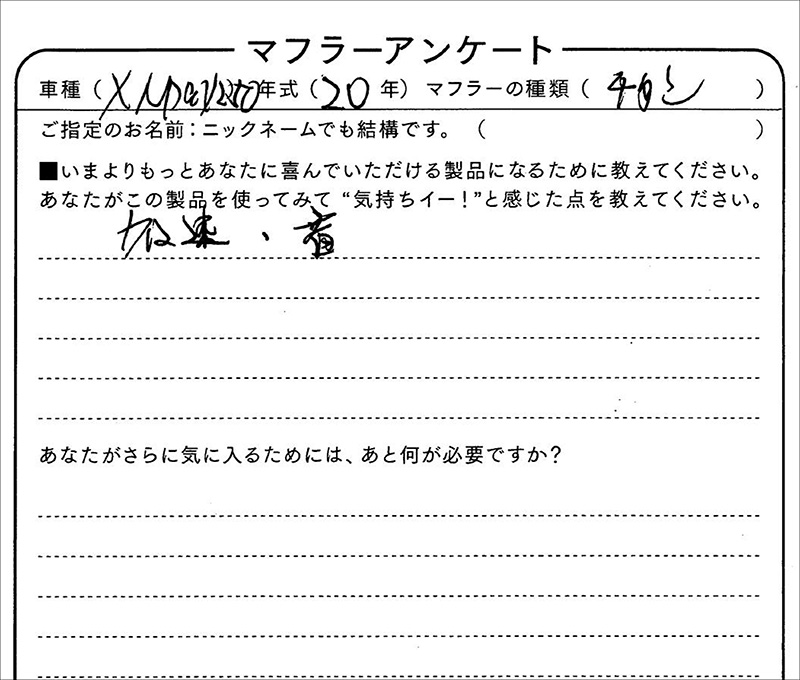 マフラーアンケート
車種( 年式(20年) マフラーの種類(チタン)
ご指定のお名前:ニックネームでも結構です。( )
■いまよりもっとあなたに喜んでいただける製品になるために教えてください。
あなたがこの製品を使ってみて“気持ちイー!”と感じた点を教えてください。
加速、音
あなたがさらに気に入るためには、あと何が必要ですか?